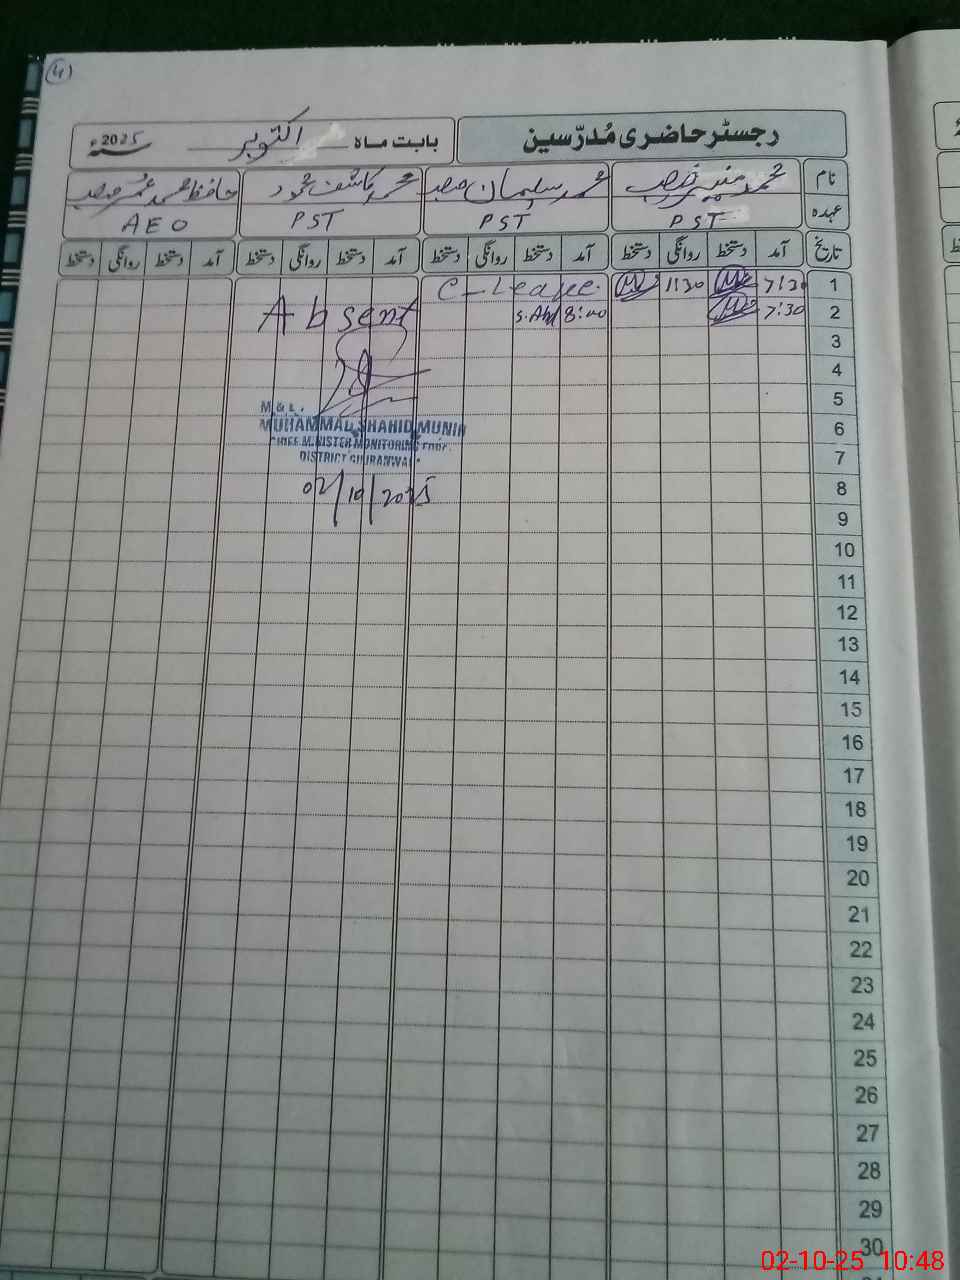 رجسٹر حاضری مُدرّسین
بابت ماہ اکتوبر 2025ء
نام محمد منیر صاحب محمد سلیمان صاحب محمد کاشف محمود حافظ محمد عمر صاحب
عہدہ PST PST PST AEO
تاریخ آمد دستخط روانگی دستخط آمد دستخط روانگی دستخط آمد دستخط روانگی دستخط آمد دستخط روانگی دستخط
1 7:30 1:30 C-Leave.
2 7:30 8:00 Absent
3
4
5
M & E.
6 MUHAMMAD SHAHID MUNIR
CHIEF MINISTER MONITORING FORCE
7 DISTRICT GUJRANWALA
8 02/10/2025
9
10
11
12
13
14
15
16
17
18
19
20
21
22
23
24
25
26
27
28
29
30
02-10-25 10:48